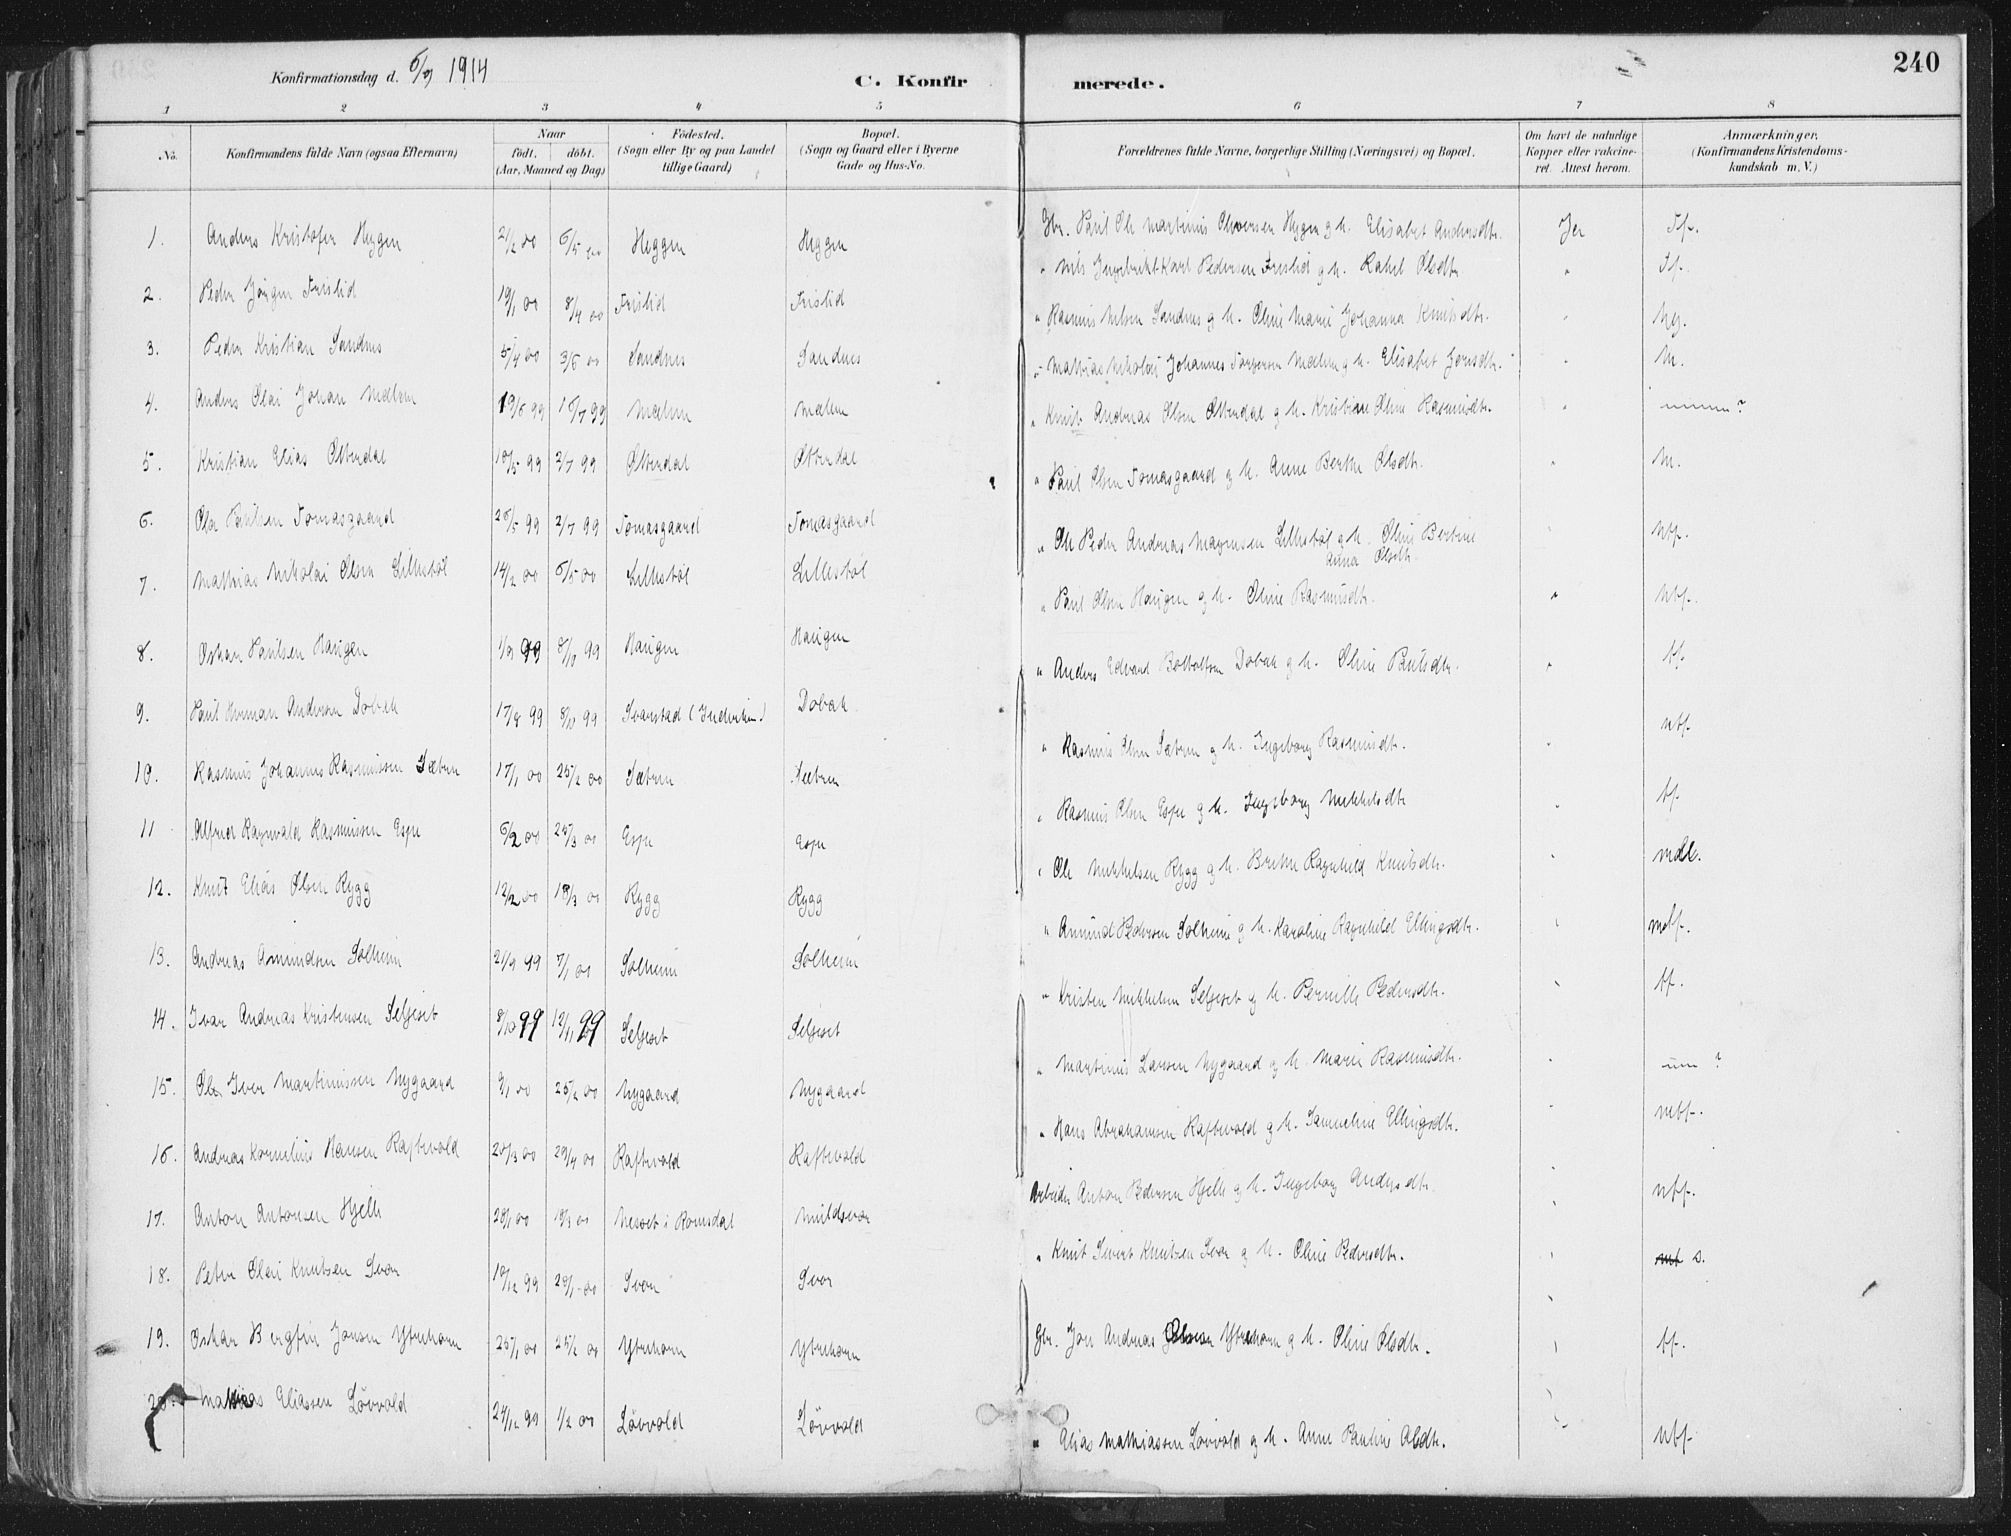 240
Konfirmationsdag d. 6/9 1914
C. Konfirmerede.
1 2 3 4 5 6 7 8
No. Konfirmandens fulde Navn (ogsaa Efternavn) Naar født. døbt. (Aar, Maaned og Dag) Fødested. (Sogn eller By og paa Landet tillige Gaard) Bopæl. (Sogn og Gaard eller i Byerne Gade og Hus-No. Forældrenes fulde Navne, borgerlige Stilling (Næringsvei) og Bopæl. Om havt de naturlige Kopper eller vakcineret. Attest herom. Anmærkninger. (Konfirmandens Kristendomskundskab m. V.)
1. Anders Kristofer Heggen 2/2 00 6/5 00 Heggen Heggen Gbr. Paul Ole Martinus Heggen g h. Elisabet Andersdtr. Ja Tf.
2. Peder Jörgen Frislid 19/1 00 8/4 00 Frislid Frislid " Nils Ingebrikt Karl Pedersen Frislid g h. Rakel Olsdtr " Tf.
3. Peder Kristian Sandnes 5/4 00 3/6 00 Sandnes Sandnes " Rasmus Nelsen Sandnes g h. Oline Marie Johanna Knutsdtr. " Mg.
4. Anders Olai Johan Mælem 19/6 99 16/7 99 Mælem Mælem " Mathias Nikolai Johannes Mælem g h. Elisabet Jonsdtr. " M.
5. Kristian Elias Otterdal 18/5 99 2/7 99 Otterdal Otterdal " Knut Andreas Olsen Otterdal g h. Kristiane Oline Rasmusdtr. " ?
6. Ola Paulsen Tomasgaard 28/5 99 2/7 99 Tomasgaard Tomasgaard " Paul Olsen Tomasgaard g h. Anne Berthe Olsdtr. " M.
7. Mathias Nikolai Olsen Lillestöl 14/2 00 6/5 00 Lillestöl Lillestöl " Ole Peder Andreas Magnusen Lillestöl g h. Oline Bertine Anna Olsdtr. " Mtf.
8. Oskar Paulsen Haugen 1/9 99 8/10 99 Haugen Haugen " Paul Olsen Haugen g h. Oline Rasmusdtr. " Mtf.
9. Paul Herman Andersen Dobak 17/8 99 8/10 99 Svarstad Dobak " Anders Edvard Dobak g h. Oline Paulsdtr. " tf.
10. Rasmus Johannes Rasmussen Sætren 17/1 00 25/2 00 Sætren Sætren " Rasmus Olsen Sætren g h. Ingeborg Rasmusdtr. " mtf.
11 Alfred Ragnvald Rasmussen Espe 6/2 00 25/3 00 Espe Espe " Rasmus Olsen Espe g h. Ingeborg Mikkelsdtr " tf.
12. Knut Elias Olsen Rygg 12/2 00 18/3 00 Rygg Rygg " Ole Mikkelsen Rygg g h. Brithe Ragnhild Knutsdtr. " mdl.
13. Andreas Amundsen Solheim 21/9 99 7/1 00 Solheim Solheim " Amund Pedersen Solheim g h. Karoline Ragnhild Ellingsdtr. " mtf.
14. Ivar Andreas Kristensen Seljeset 8/10 99 12/11 99 Seljeset Seljeset " Kristen Mikkelsen Seljeset g h. Pernille Pedersdtr. " tf.
15. Ole Iver Martinussen Nygaard 9/1 00 25/2 00 Nygaard Nygaard " Martinus Larsen Nygaard g h. Marie Rasmusdtr. " ?
16. Andreas Kornelius Hansen Raftevold 20/3 00 29/4 00 Raftevold Raftevold " Hans Abrahamsen Raftevold g h. Samueline Ellingsdtr. " mtf.
17. Anton Antonsen Hjelle 28/1 00 18/3 00 Nesset i Romsdal Muldsvor Arbeider Anton Pedersen Hjelle g h. Ingeborg Andersdtr " mtf.
18. Peter Olai Knutsen Svor 10/12 99 28/1 00 Svor Svor " Knut Sivert Knutsen Svor g h. Oline Pedersdtr. " s.
19. Oskar Bergfin Jonsen Ytrehorn 25/1 00 25/2 00 Ytrehorn Ytrehorn Gbr. Jon Andreas Ytrehorn g h. Oline Olsdtr. " tf.
20. Mathias Eliassen Lövvold 24/12 99 1/2 00 Lövvold Lövvold " Elias Mathiassen Lövvold g h. Anne Pauline Olsdtr. " mtf.